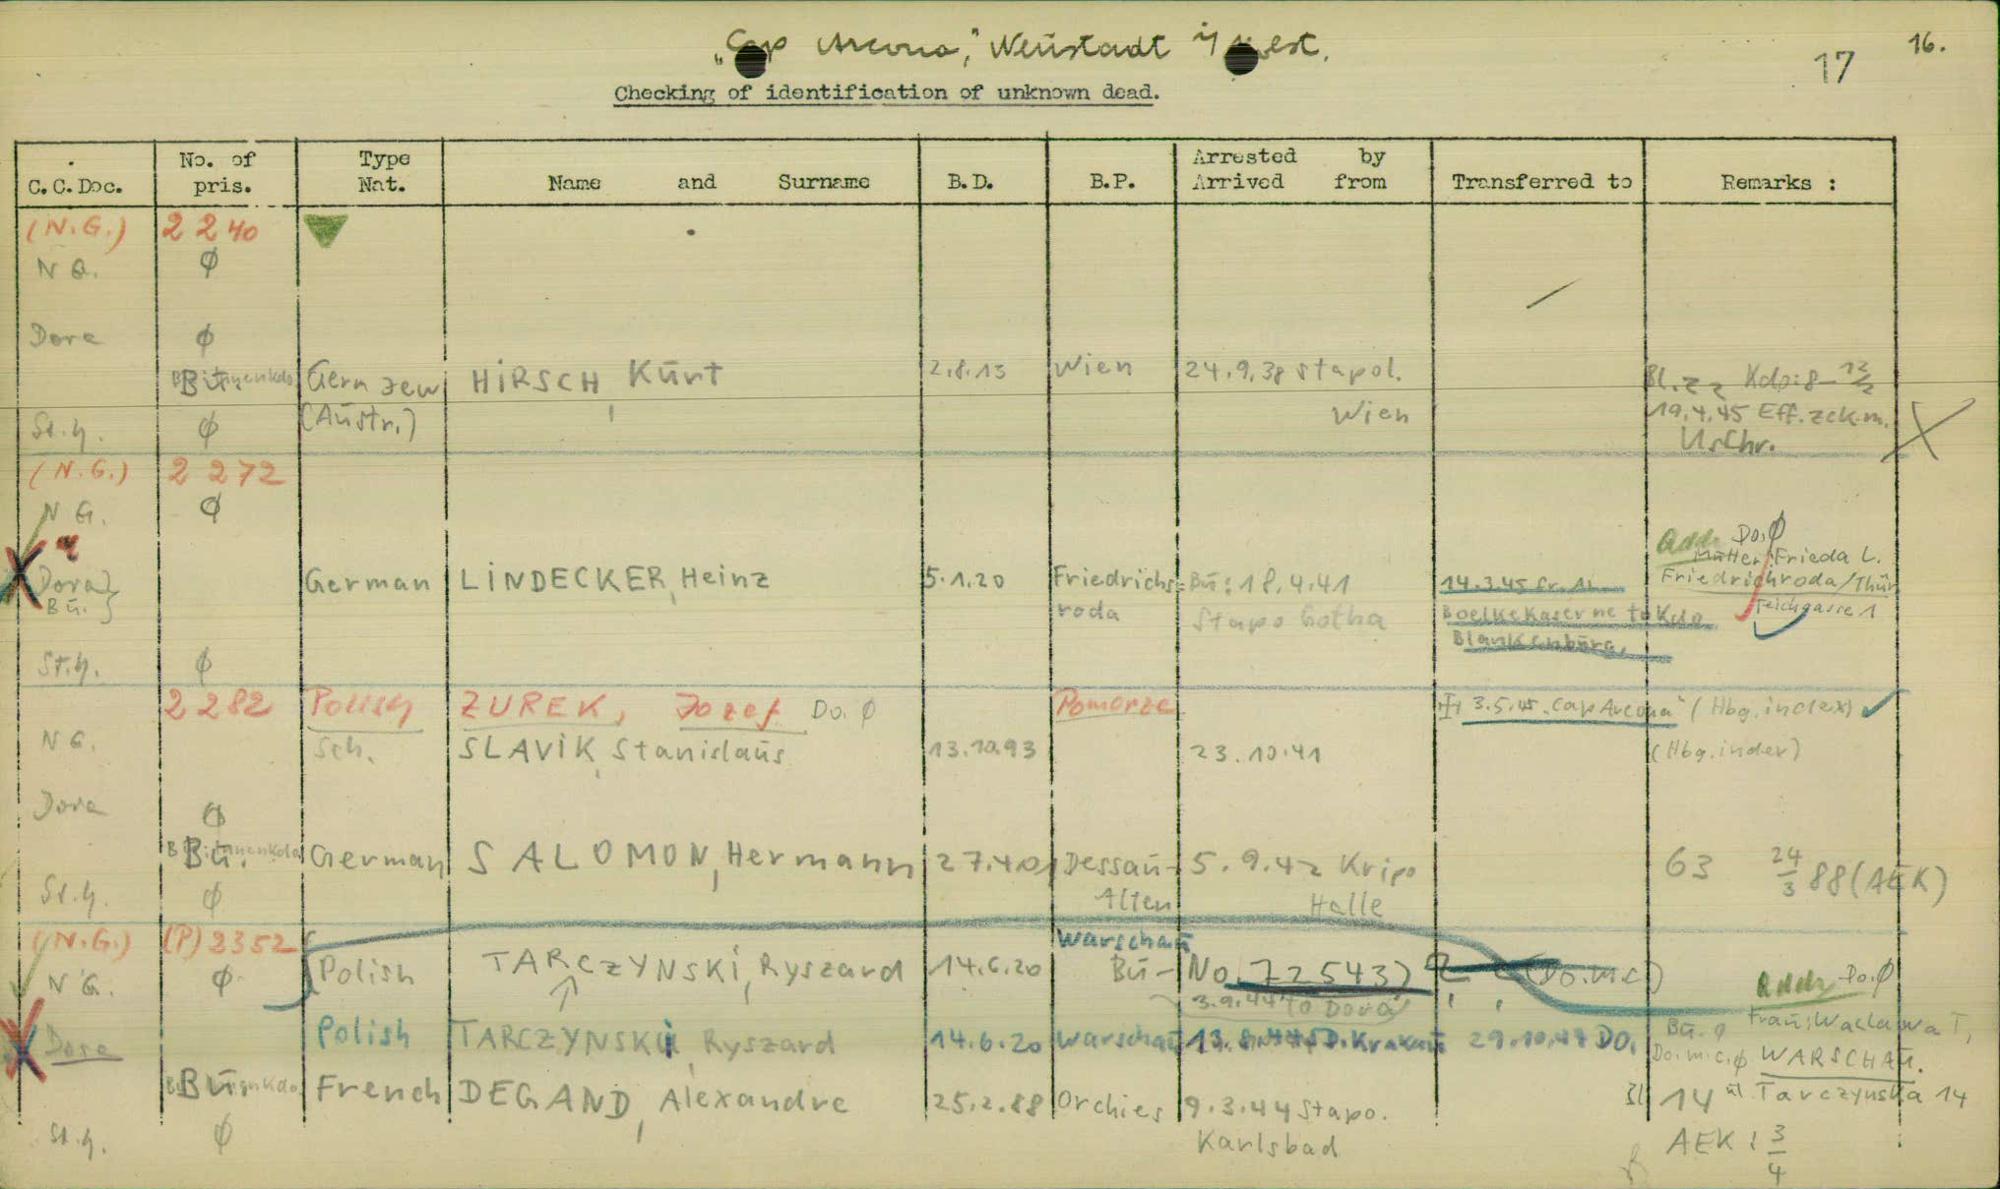 „Cap Arcona", Neustadt i/
16.
17
Checking of identification of unknown dead.
C.C.Doc. No. of pris. Type Nat. Name and Surname B.D. B.P. Arrested by Arrived from Transferred to Remarks :
(N.G.) 2240
N G. ø
Dora ø
Bü Germ Jew HIRSCH, Kurt 2.8.13 Wien 24.9.38 Stapol. Bl.22 Kdo:8
(Austr.) Wien 19.4.45 Eff.zck.m.
St.h. ø UsChr.
(N.G.) 2272
N G. ø
Addr. Do.ø
Mutter: Frieda L.
Dora} German LINDECKER, Heinz 5.1.20 Friedrichs= Bü: 18.4.41 14.3.45 fr. Friedrichroda/Thür
Bü.} roda Stapo Gotha Boelkekaserne to Kdo Teichgasse 1
Blankenburg.
St.h. ø
2282 Polish ZUREK, Jozef Do. ø Pomorze 3.5.45 „Cap Arcona" (Hbg.index)
N G. Sch. SLAVIK, Stanislaus 13.10.93 23.10.41 (Hbg.index)
Dora ø
Bü. German SALOMON, Hermann Dessau- 5.9.42 Kripo 63 24/3 88 (AEK)
St.h. ø Alten Halle
(N.G.) (P) 2352 Warschau
N G. ø Polish TARCZYNSKI, Ryszard 14.6.20 Bü- No. 72543) (Do.m.c) Addr. Do.ø
3.9.44 to Dora
Frau: Waclawa T,
Dora Polish TARCZYNSKI, Ryszard 14.6.20 Warschau S.D. Krakau DO. Bü. ø
Do.m.c.ø WARSCHAU.
Bü French DEGAND, Alexandre 25.2.88 Orchies 9.3.44 Stapo. Bl 14 ul. Tarczynska 14
St.h. ø Karlsbad AEK: 3/4